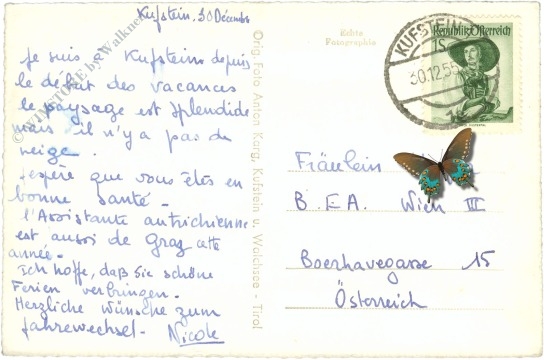 Kufstein, 30 Décembre
Je suis à Kufstein depuis
le début des vacances
le paysage est splendide
mais il n'y a pas de
neige.
J'espère que vous êtes en
bonne santé -
l'Assistante autrichienne
est aussi de Graz cette
année -
Ich hoffe, daß Sie schöne
Ferien verbringen -
Herzliche Wünsche zum
Jahrewechsel - Nicole
Orig. Foto Anton Karg, Kufstein u. Walchsee - Tirol
Echte
Fotographie
KUFSTEIN
30.12.55
Republik Österreich
1S
Fräulein
B.E.A. Wien III
Boerhavegasse 15
Österreich